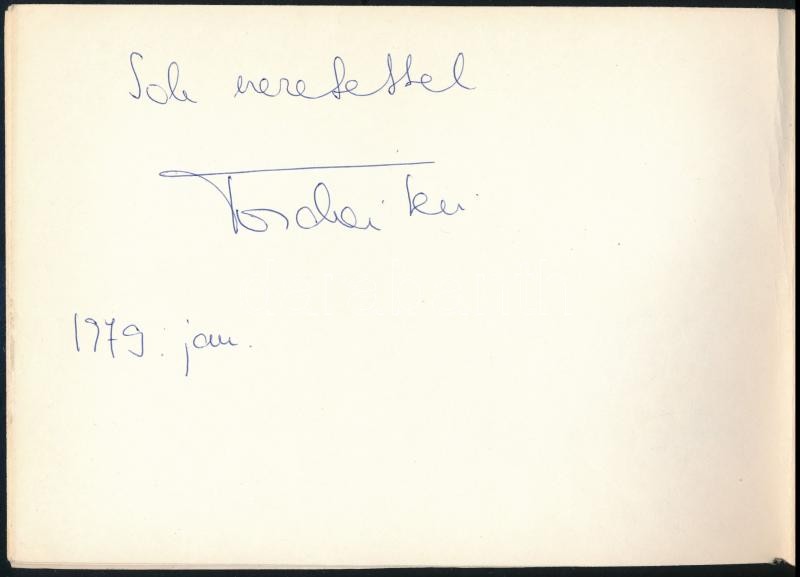 Sok szeretettel
Tordai Teri
1979. jan.